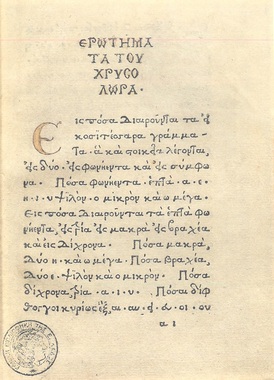 ΕΡΩΤΗΜΑ
ΤΑ ΤΟΥ
ΧΡΥΣΟ
ΛΩΡΑ·
Εἰς πόσα διαιροῦνται τὰ εἰ
κοσιτέσσαρα γράμμα-
τα· ἃ καὶ στοιχεῖα λέγονται,
εἰς δύο· εἰς φωνήεντα καὶ εἰς σύμφω
να· Πόσα φωνήεντα· ἑπτὰ· α· ε·
η· ι· υ ψιλὸν· ο μικρὸν καὶ ω μέγα·
Εἰς πόσα διαιροῦνται τὰ ἑπτὰ φω
νήεντα, εἰς τρία· εἰς μακρὰ εἰς βραχέα
καὶ εἰς δίχρονα· Πόσα μακρὰ,
δύο η· καὶ ω μέγα· Πόσα βραχέα,
δύο ε· ψιλὸν καὶ ο μικρὸν· Πόσα
δίχρονα, τρία· α· ι· υ· Πόσαι δίφ
θογγοι κυρίως ἕξ, αι· αυ· ει· ευ· οι· ου
α ι